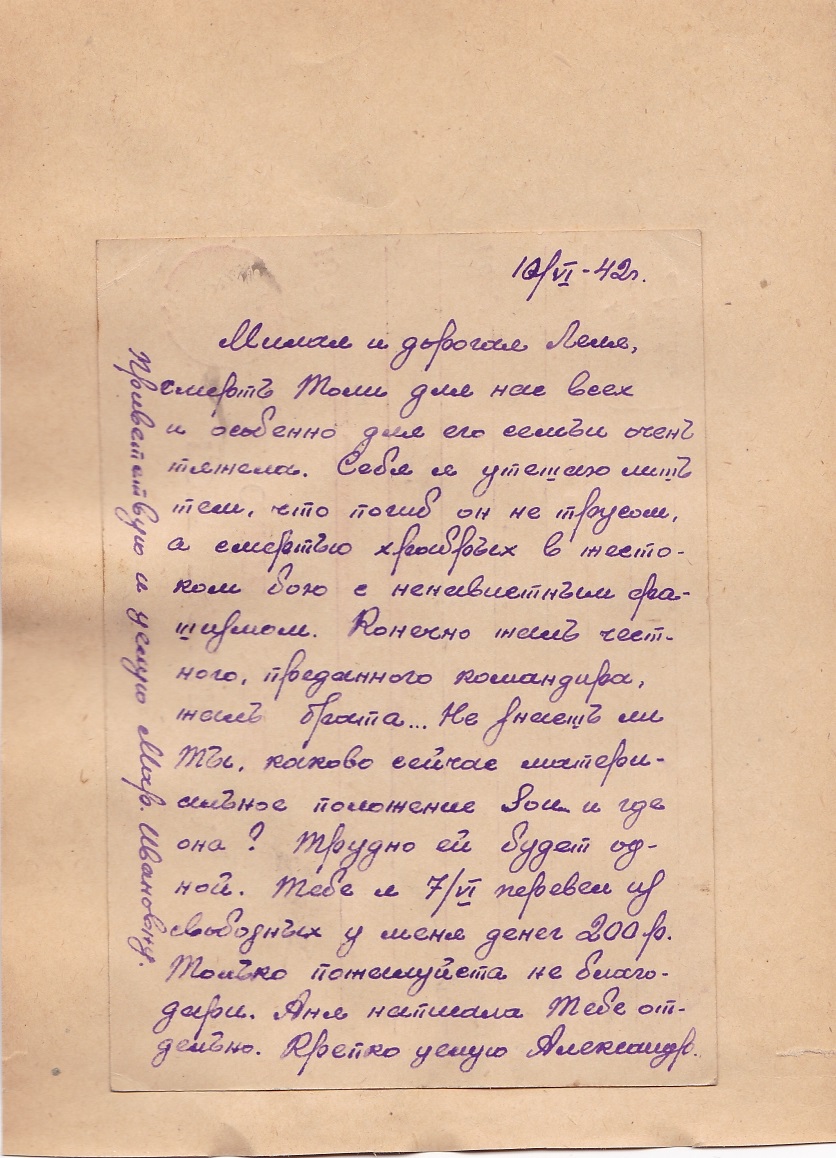 10/VI-42г.
Милая и дорогая Леля,
смерть Толи для нас всех
и особенно для его семьи очень
тяжела. Себя я утешаю лишь
тем, что погиб он не трусом,
а смертью храбрых в жесто-
ком бою с ненавистным фа-
шизмом. Конечно жаль чест-
ного, преданного командира,
жаль брата... Не знаешь ли
Ты, каково сейчас матери-
альное положение Зои и где
она? Трудно ей будет од-
ной. Тебе я 7/VI перевел из
свободных у меня денег 200 р.
Только пожалуйста не благо-
дари. Аня написала Тебе от-
дельно. Крепко целую Александр.
Приветствую и целую Мар. Ивановну.